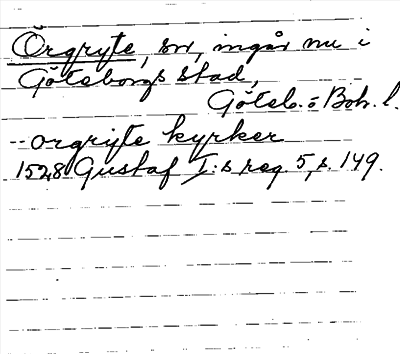 Örgryte, sn, ingår nu i
Göteborgs stad,
Göteb. o Boh. l.
-- orgrijte kyrker
1528 Gustaf I:s reg. 5, s. 149.